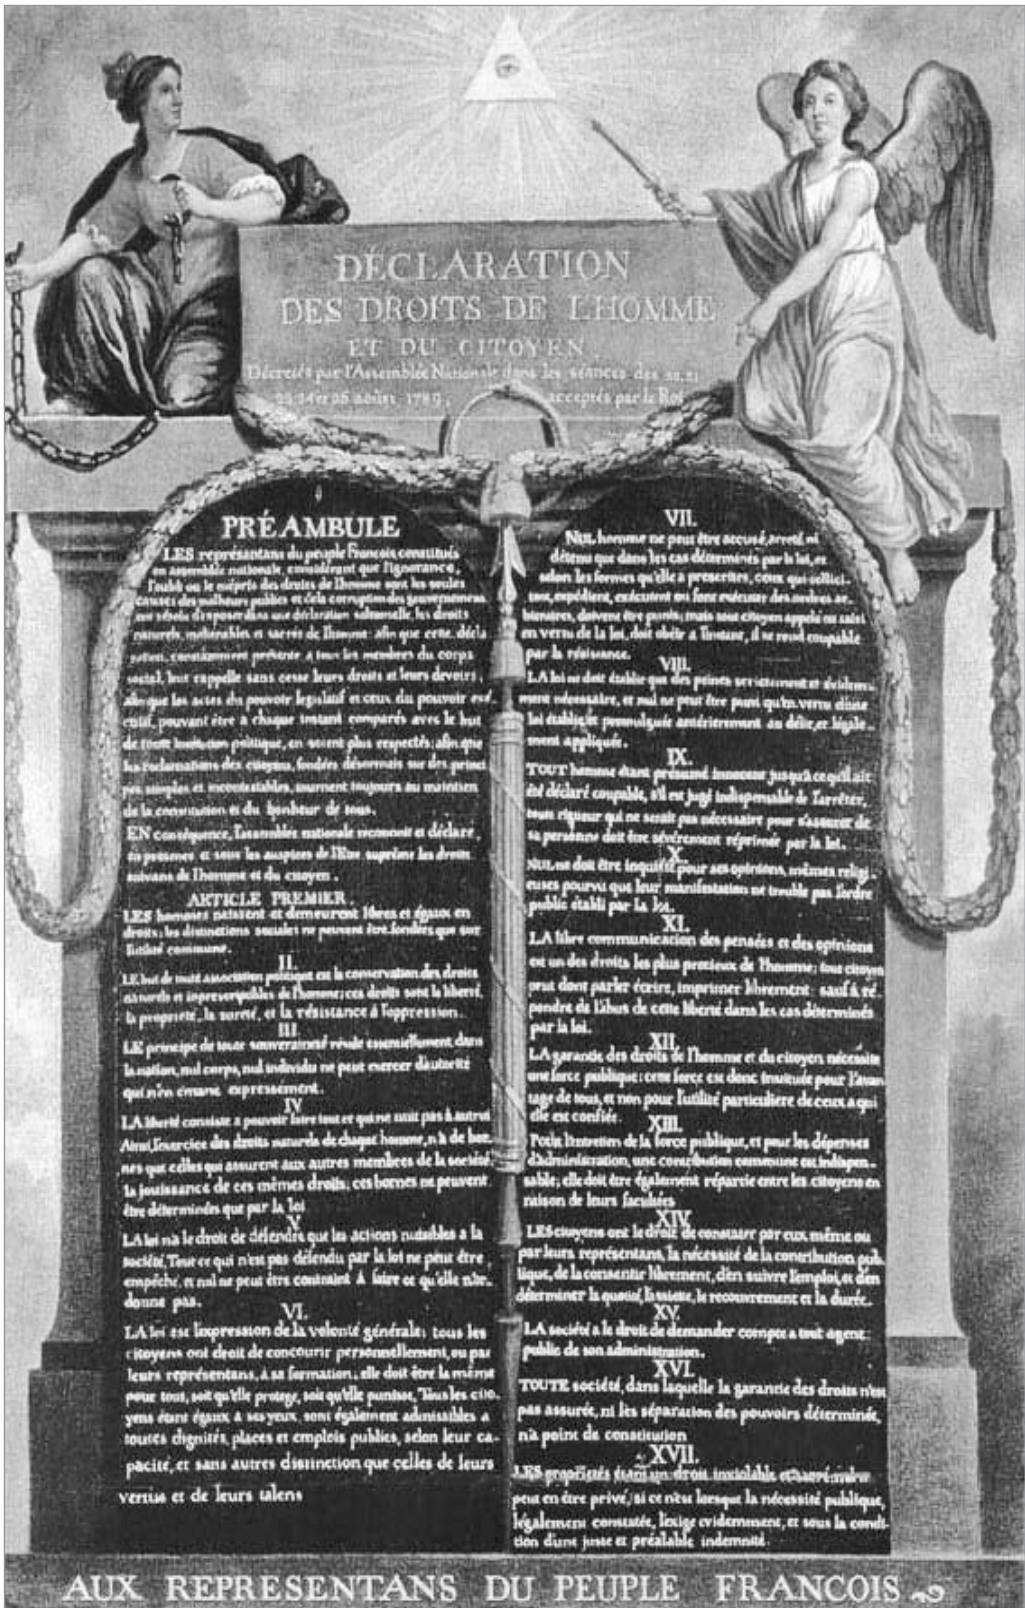 DÉCLARATION
DES DROITS DE L'HOMME
ET DU CITOYEN,
Décretés par l'Assemblée Nationale dans les séances des 20, 21
23 24 et 26 aoûst 1789, acceptés par le Roi
PRÉAMBULE
LES représentans du peuple Francois constitués
en assemblée nationale, considérant que l'ignorance,
l'oubli ou le mépris des droits de l'homme sont les seules
causes des malheurs publics et de la corruption des gouvernemens
ont résolu d'exposer dans une déclaration solemnelle, les droits
naturels, inaliénables et sacrés de l'homme: afin que cette décla
ration, constamment présente a tous les membres du corps
social, leur rappelle sans cesse leurs droits et leurs devoirs,
afin que les actes du pouvoir legislatif et ceux du pouvoir exé
cutif, pouvant être a chaque instant comparés avec le but
de toute institution politique, en soient plus respectés; afin que
les reclamations des citoyens, fondées désormais sur des princi
pes simples et incontestables, tournent toujours au maintien
de la constitution et du bonheur de tous.
EN conséquence, l'assemblée nationale reconnoit et déclare,
en presence et sous les auspices de l'Etre suprême les droits
suivans de l'homme et du citoyen.
ARTICLE PREMIER.
LES hommes naissent et demeurent libres et égaux en
droits; les distinctions sociales ne peuvent être fondées que sur
l'utilité commune.
II.
LE but de toute association politique est la conservation des droits
naturels et inprescriptibles de l'homme; ces droits sont la liberté,
la propriété, la sureté, et la résistance à l'oppression.
III.
LE principe de toute souveraineté réside essentiellement dans
la nation, nul corps, nul individu ne peut exercer d'autorité
qui n'en émane expressément.
IV.
LA liberté consiste a pouvoir faire tout ce qui ne nuit pas à autrui
Ainsi, l'exercice des droits naturels de chaque homme, n'a de bor-
nes que celles qui assurent aux autres membres de la société
la jouissance de ces mêmes droits; ces bornes ne peuvent
être déterminées que par la loi
V.
LA loi n'a le droit de défendre que les actions nuisibles à la
société. Tout ce qui n'est pas défendu par la loi ne peut être
empêché, et nul ne peut être contraint à faire ce qu'elle n'or-
donne pas.
VI.
LA loi est l'expression de la volonté générale; tous les
citoyens ont droit de concourir personnellement, ou par
leurs représentans, à sa formation; elle doit être la même
pour tous, soit qu'elle protege, soit qu'elle punisse. Tous les cito
yens étant égaux à ses yeux, sont également admissibles a
toutes dignités, places et emplois publics, selon leur ca-
pacité, et sans autres distinction que celles de leurs
vertus et de leurs talens
VII.
NUL homme ne peut être accusé, arreté, ni
détenu que dans les cas déterminés par la loi, et
selon les formes qu'elle a prescrites, ceux qui sollici-
tent, expédient, exécutent ou font exécuter des ordres ar-
bitraires, doivent être punis; mais tout citoyen appelé ou saisi
en vertu de la loi, doit obéir a l'instant, il se rend coupable
par la résistance.
VIII.
LA loi ne doit établir que des peines strictement et évidem-
ment nécessaire, et nul ne peut être puni qu'en vertu d'une
loi établie et promulguée antérierement au délit, et légale-
ment appliquée.
IX.
TOUT homme étant présumé innocent jusqu'a ce qu'il ait
été déclaré coupable, s'il est jugé indispensable de l'arrêter,
toute rigueur qui ne serait pas nécessaire pour s'assurer de
sa personne doit être sévèrement réprimée par la loi.
X.
NUL ne doit être inquiété pour ses opinions, mêmes religi-
euses pourvu que leur manifestation ne trouble pas l'ordre
public établi par la loi.
XI.
LA libre communication des pensées et des opinions
est un des droits les plus precieux de l'homme; tout citoyen
peut dont parler écrire, imprimer librement: sauf à ré-
pondre de l'abus de cette liberté dans les cas déterminés
par la loi.
XII.
LA garantie des droits de l'homme et du citoyen nécessite
une force publique; cette force est donc instituée pour l'avan
tage de tous, et non pour l'utilité particuliere de ceux a qui
elle est confiée.
XIII.
POUR l'entretien de la force publique, et pour les dépenses
d'administration, une contribution commune est indispen-
sable; elle doit être également répartie entre les citoyens en
raison de leurs facultées
XIV.
LES citoyens ont le droit de constater par eux même ou
par leurs représentans, la nécessité de la contribution pub-
lique, de la consentir librement, d'en suivre l'emploi, et d'en
déterminer la quotité, l'assiette, le recouvrement et la durée.
XV.
LA société a le droit de demander compte a tout agent
public de son administration.
XVI.
TOUTE société, dans laquelle la garantie des droits n'est
pas assurée, ni les séparation des pouvoirs déterminée,
n'a point de constitution
XVII.
LES propriétés étant un droit inviolable et sacré, nul ne
peut en être privé, si ce n'est lorsque la nécessité publique,
légalement constatée, l'exige evidemment, et sous la condi-
tion d'une juste et préalable indemnité.
AUX REPRESENTANS DU PEUPLE FRANCOIS